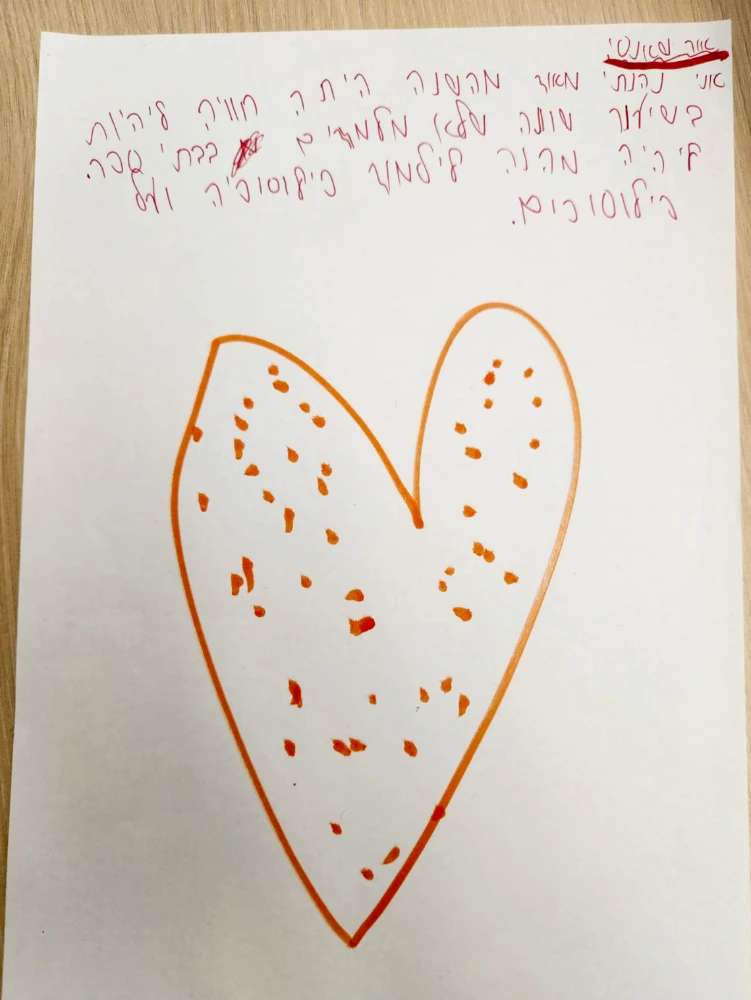 אני נהנתי מאוד מהשנה היתה חוויה ליהיות
בשיעור שונה שלא מלמדים בבתי ספר.
ליהיה מהנה לילמוד פילוסופיה ועל
פילוסופים.